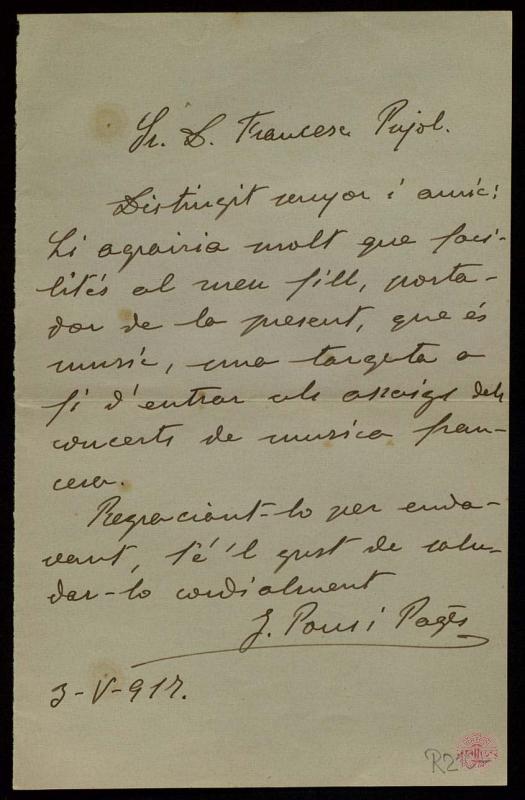 Sr. D. Francesc Pujol.
Distingit senyor i amic:
Li agrairia molt que faci-
lités al meu fill, porta-
dor de la present, que és
music, una targeta a
fi d'entrar als assaigs dels
concerts de musica fran-
cesa.
Regraciant-lo per enda-
vant, té'l gust de salu-
dar-lo cordialment
J. Pous i Pagès
3-V-917.